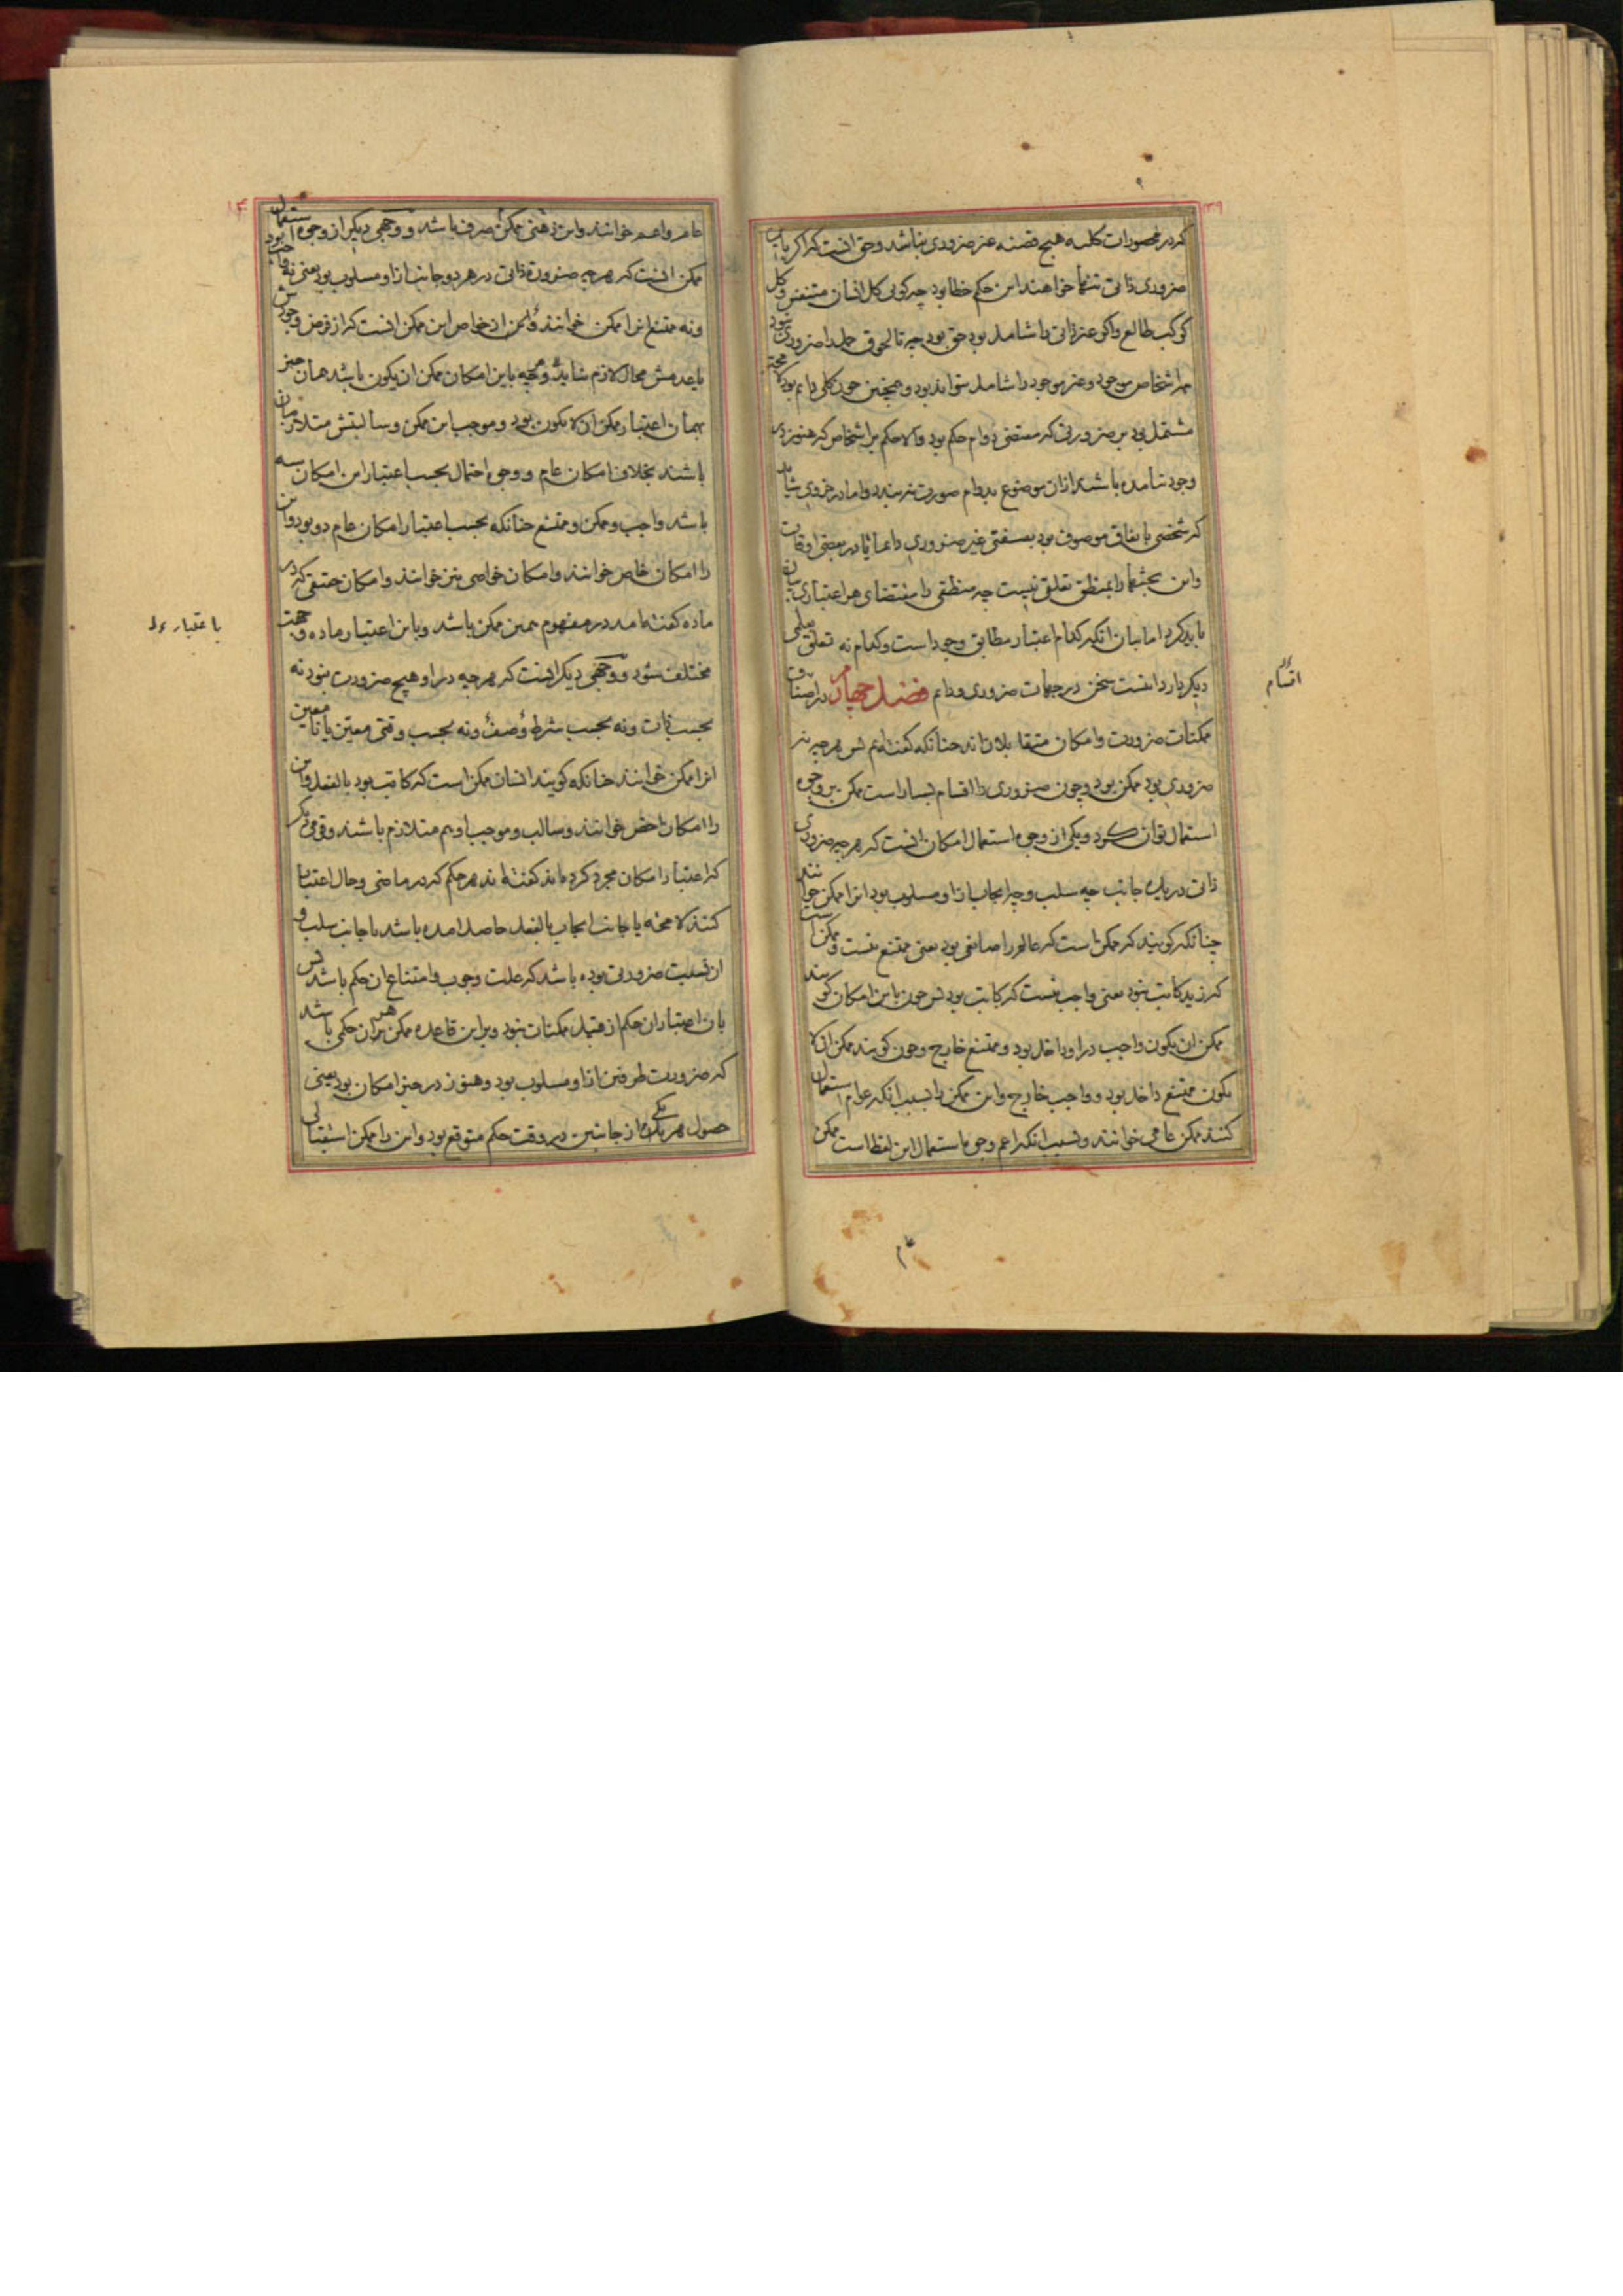 ۱۳۹
که در محصورات کلیه هیچ قضیه غیر ضروری نباشد و حق آنست که اگر باین
ضروری ذاتی تنها خواهند این حکم خطا بود چه کوئی کل انسان متنفس و کل
کوکب طالع و اکر غیر ذاتی را شامل بود حق بود چه تا لحوق حمل را ضروری نبود
همه اشخاص موجود و غیر موجود را شامل نتواند بود و همچنین چون کلی دایم بود لا محاله
مشتمل بود بر ضرورتی که مقتضی دوام حکم بود والا حکم بر اشخاص که هنوز در
وجود نیامده باشند از آن موضوع بدوام صورت نبندد و اما در جزوی شاید
که شخصی باتفاق موصوف بود بصفتی غیر ضروری دائما یا در بعضی اوقات
و این بحثها را بمنطق تعلقی نیست چه منطقی را مقتضای هر اعتباری بیان
باید کرد اما بیان آنکه کدام اعتبار مطابق وجود است و کدام نه تعلق بعلمی
دیکر دارد اینست سخن در جهات ضروری و دایم فصل چهارم در اصناف
اقسام
ممکنات ضرورت و امکان متقابلان‌اند چنانکه کفته‌ایم پس هرچه نه
ضروری بود ممکن بود و چون ضروری را اقسام بسیار است ممکن بر وجوه
استعمال توان کرد و یکی از وجوه استعمال امکان آنست که هرچه ضروری
ذاتی در یک جانب چه سلب و چه ایجاب ازو مسلوب بود آنرا ممکن خوانند
چنانکه کویند که ممکن است که عالم را صانعی بود یعنی ممتنع نیست و ممکن است
که زید کاتب نبود یعنی واجب نیست که کاتب بود پس چون باین امکان کویند
ممکن ان یکون واجب درو داخل بود و ممتنع خارج و چون کویند ممکن ان لا
یکون ممتنع داخل بود و واجب خارج و این ممکن را بسبب آنکه عوام استعمال
کنند ممکن عامی خوانند و بسبب آنکه اعم وجوه استعمال این لفظ است ممکن
عام
۱۴۰
عام و اعم خوانند و این ذهنی ممکن صرف باشد و وجهی دیکر از وجوه استعمال
ممکن آنست که هرچه ضرورة ذاتی در هر دو جانب ازو مسلوب بود یعنی نه واجب بود
و نه ممتنع آنرا ممکن خوانند و این ممکن آنست که از فرض وجودش
یا عدمش محال لازم نیاید و هرچه باین امکان ممکن ان یکون باشد همان چیز
بهمان اعتبار ممکن ان لا یکون بود و موجب این ممکن و سالبتش متلازمان
باشند بخلاف امکان عام و وجوه احتمال بحسب اعتبار این امکان سه
باشد واجب و ممکن و ممتنع چنانکه بحسب اعتبار امکان عام دو بود و این
را امکان خاص خوانند و امکان خاصی نیز خوانند و امکان حقیقی که در
ماده کفته آمد در مفهوم همین ممکن باشد و باین اعتبار ماده و جهت
باعتبار
مختلف شود و وجهی دیکر آنست که هرچه درو هیچ ضرورت نبود نه
بحسب ذات و نه بحسب شرط وصف و نه بحسب وقتی معین یا نامعین
آنرا ممکن خوانند چنانکه کویند انسان ممکن است که کاتب بود بالفعل و این
را امکان اخص خوانند و سالب و موجب او هم متلازم باشند و قومی دیکر
که اعتبار امکان مجرد کرده‌اند کفته‌اند هر حکم که در ماضی و حال اعتبار
کنند لا محاله یا جانب ایجاب بالفعل حاصل آمده باشد یا جانب سلب و
آن بسبب ضرورتی بوده باشد که علت وجوب و امتناع آن حکم باشد پس
بآن اعتبار آن حکم از قبیل ممکنات نبود و برین قاعده ممکن هر آن حکمی باشد
که ضرورت طرفین ازو مسلوب بود و هنوز در حیز امکان بود یعنی
حصول هر یکی از جانبین در وقت حکم متوقع بود و این را ممکن استقبالی